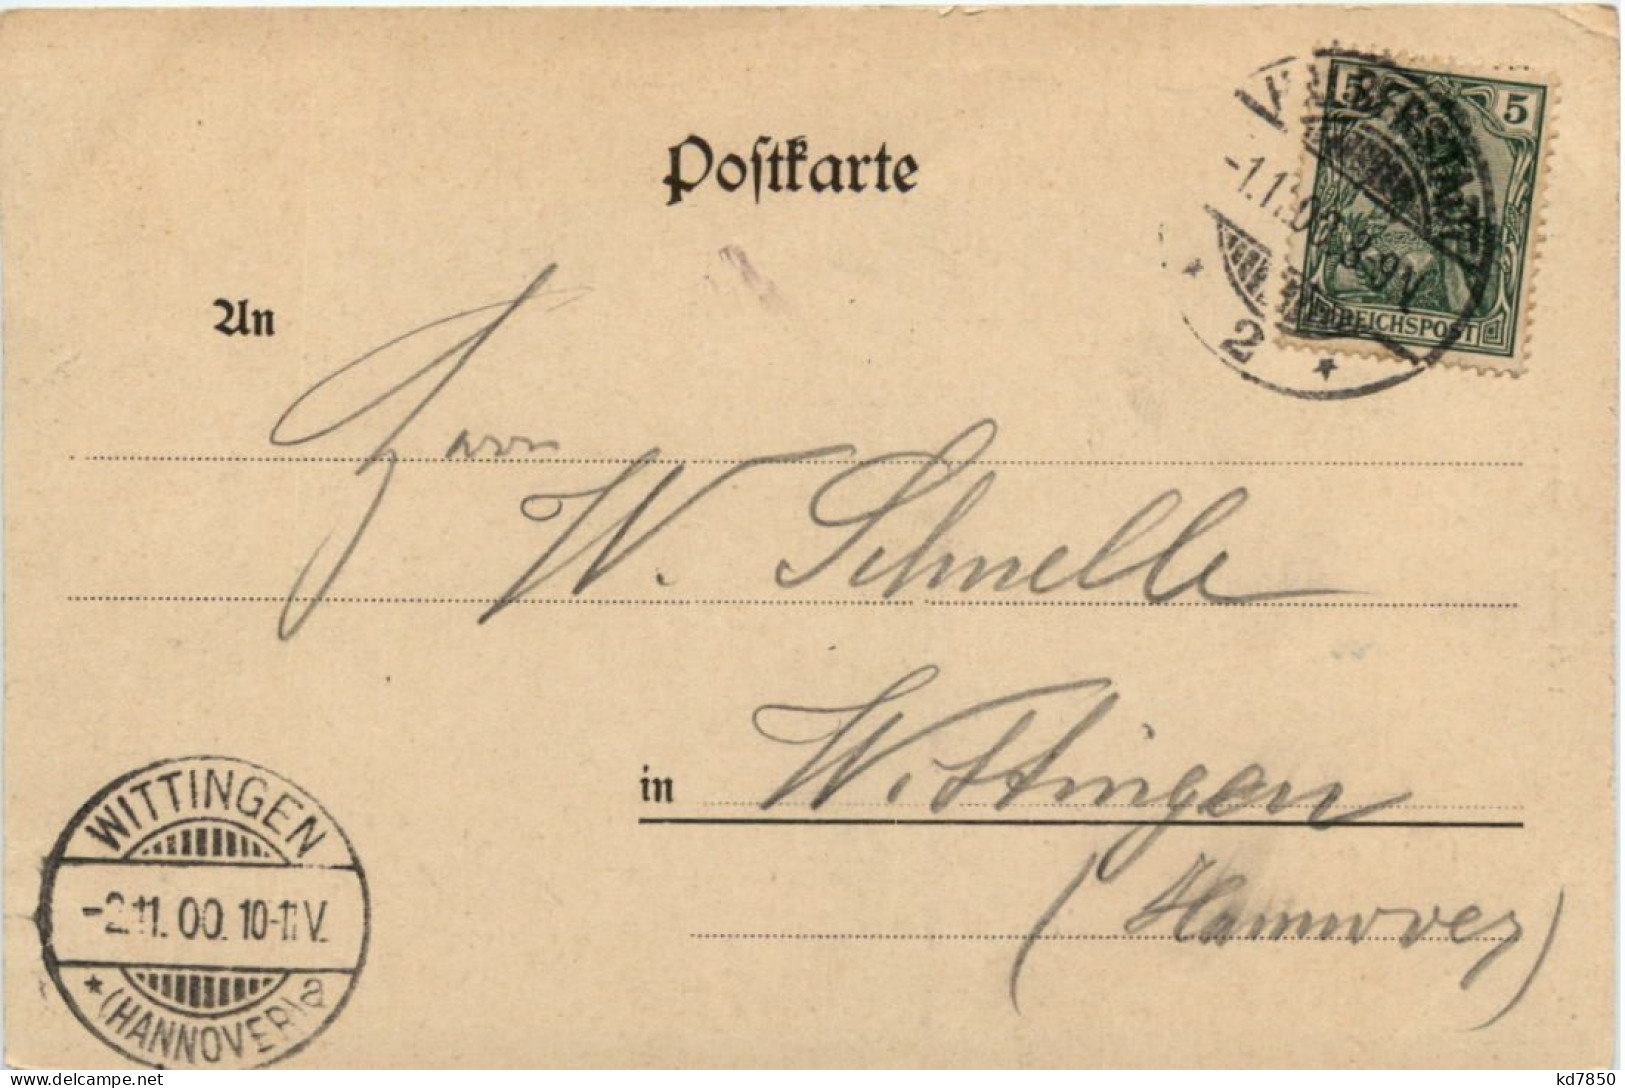 HALBERSTADT
-1.11.00. 8-9V
* 2 *
5 5
REICHSPOST
Poſtkarte
An
Herrn
W. Schnelle
in Wittingen
(Hannover)
WITTINGEN
-2.11.00. 10-11.V.
* (HANNOVER) a
kd7850